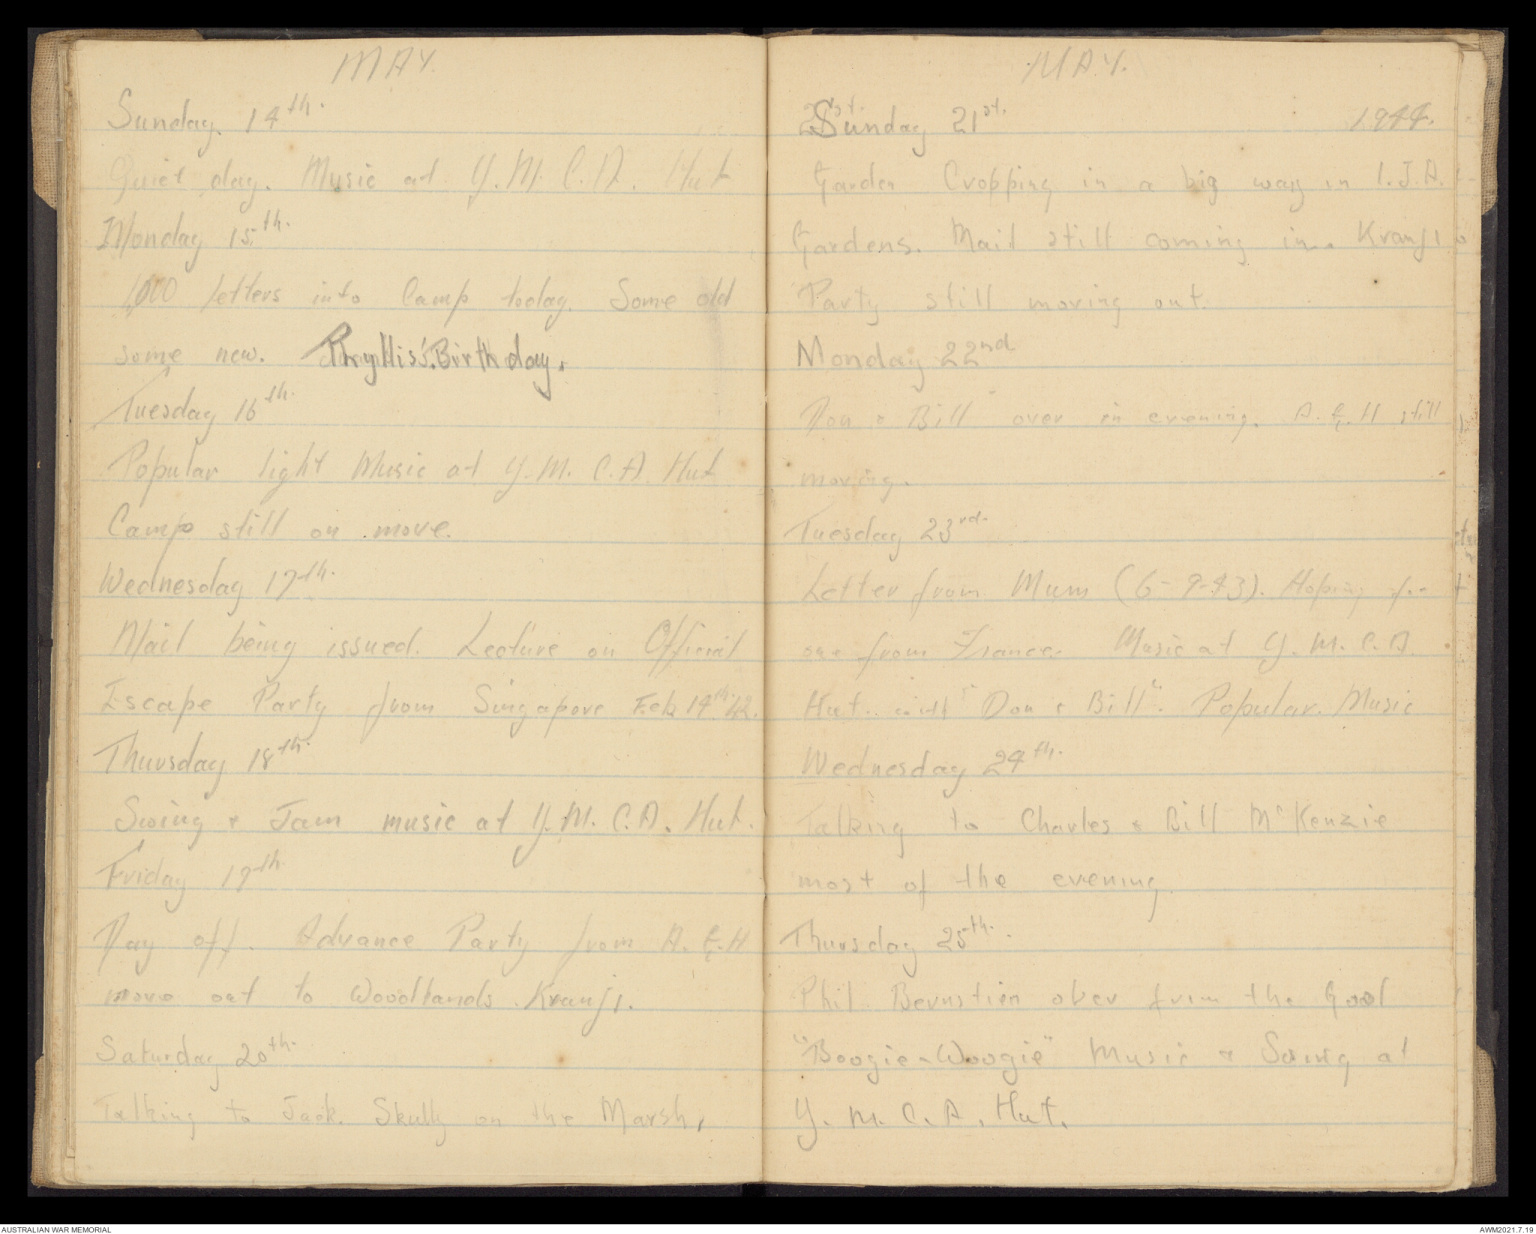 MAY.
Sunday. 14th.
Quiet day. Music at Y.M.C.A. Hut
Monday 15th.
1,000 letters into Camp today. Some old
some new. Phyllis's Birthday.
Tuesday 16th.
Popular light Music at Y.M.C.A. Hut
Camp still on move.
Wednesday 17th.
Mail being issued. Lecture on Official
Escape Party from Singapore Feb 14th 42.
Thursday 18th.
Swing & Jam music at Y.M.C.A. Hut.
Friday 19th
Day off. Advance Party from A.G.H
move out to Woodlands Kranji.
Saturday 20th.
Talking to Jack Skully on the Marsh,
MAY.
Sunday 21st. 1944.
Garden Cropping in a big way in I.J.A.
Gardens. Mail still coming in. Kranji
Party still moving out.
Monday 22nd.
Don & Bill over in evening. A.G.H still
moving.
Tuesday 23rd.
Letter from Mum (6-9-43). Hoping for
one from France. Music at Y.M.C.A.
Hut. with "Don & Bill". Popular Music
Wednesday 24th.
Talking to Charles & Bill McKenzie
most of the evening
Thursday 25th.
Phil Bernstien over from the Gaol
"Boogie-Woogie" Music & Swing at
Y.M.C.A. Hut.
AUSTRALIAN WAR MEMORIAL
AWM2021.7.19